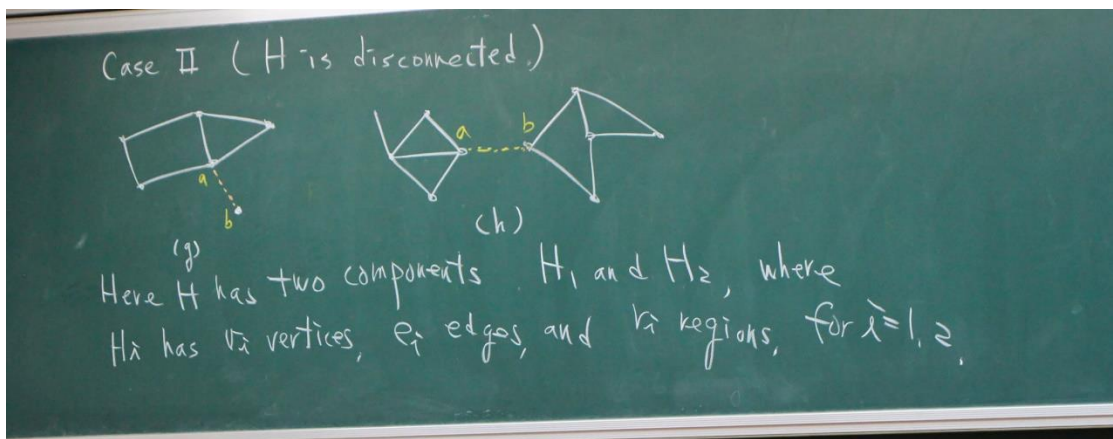 Case II (H is disconnected.)
a
b
a
b
(g)
(h)
Here H has two components H₁ and H₂, where
Hi has vi vertices, ei edges, and ri regions, for i=1, 2.